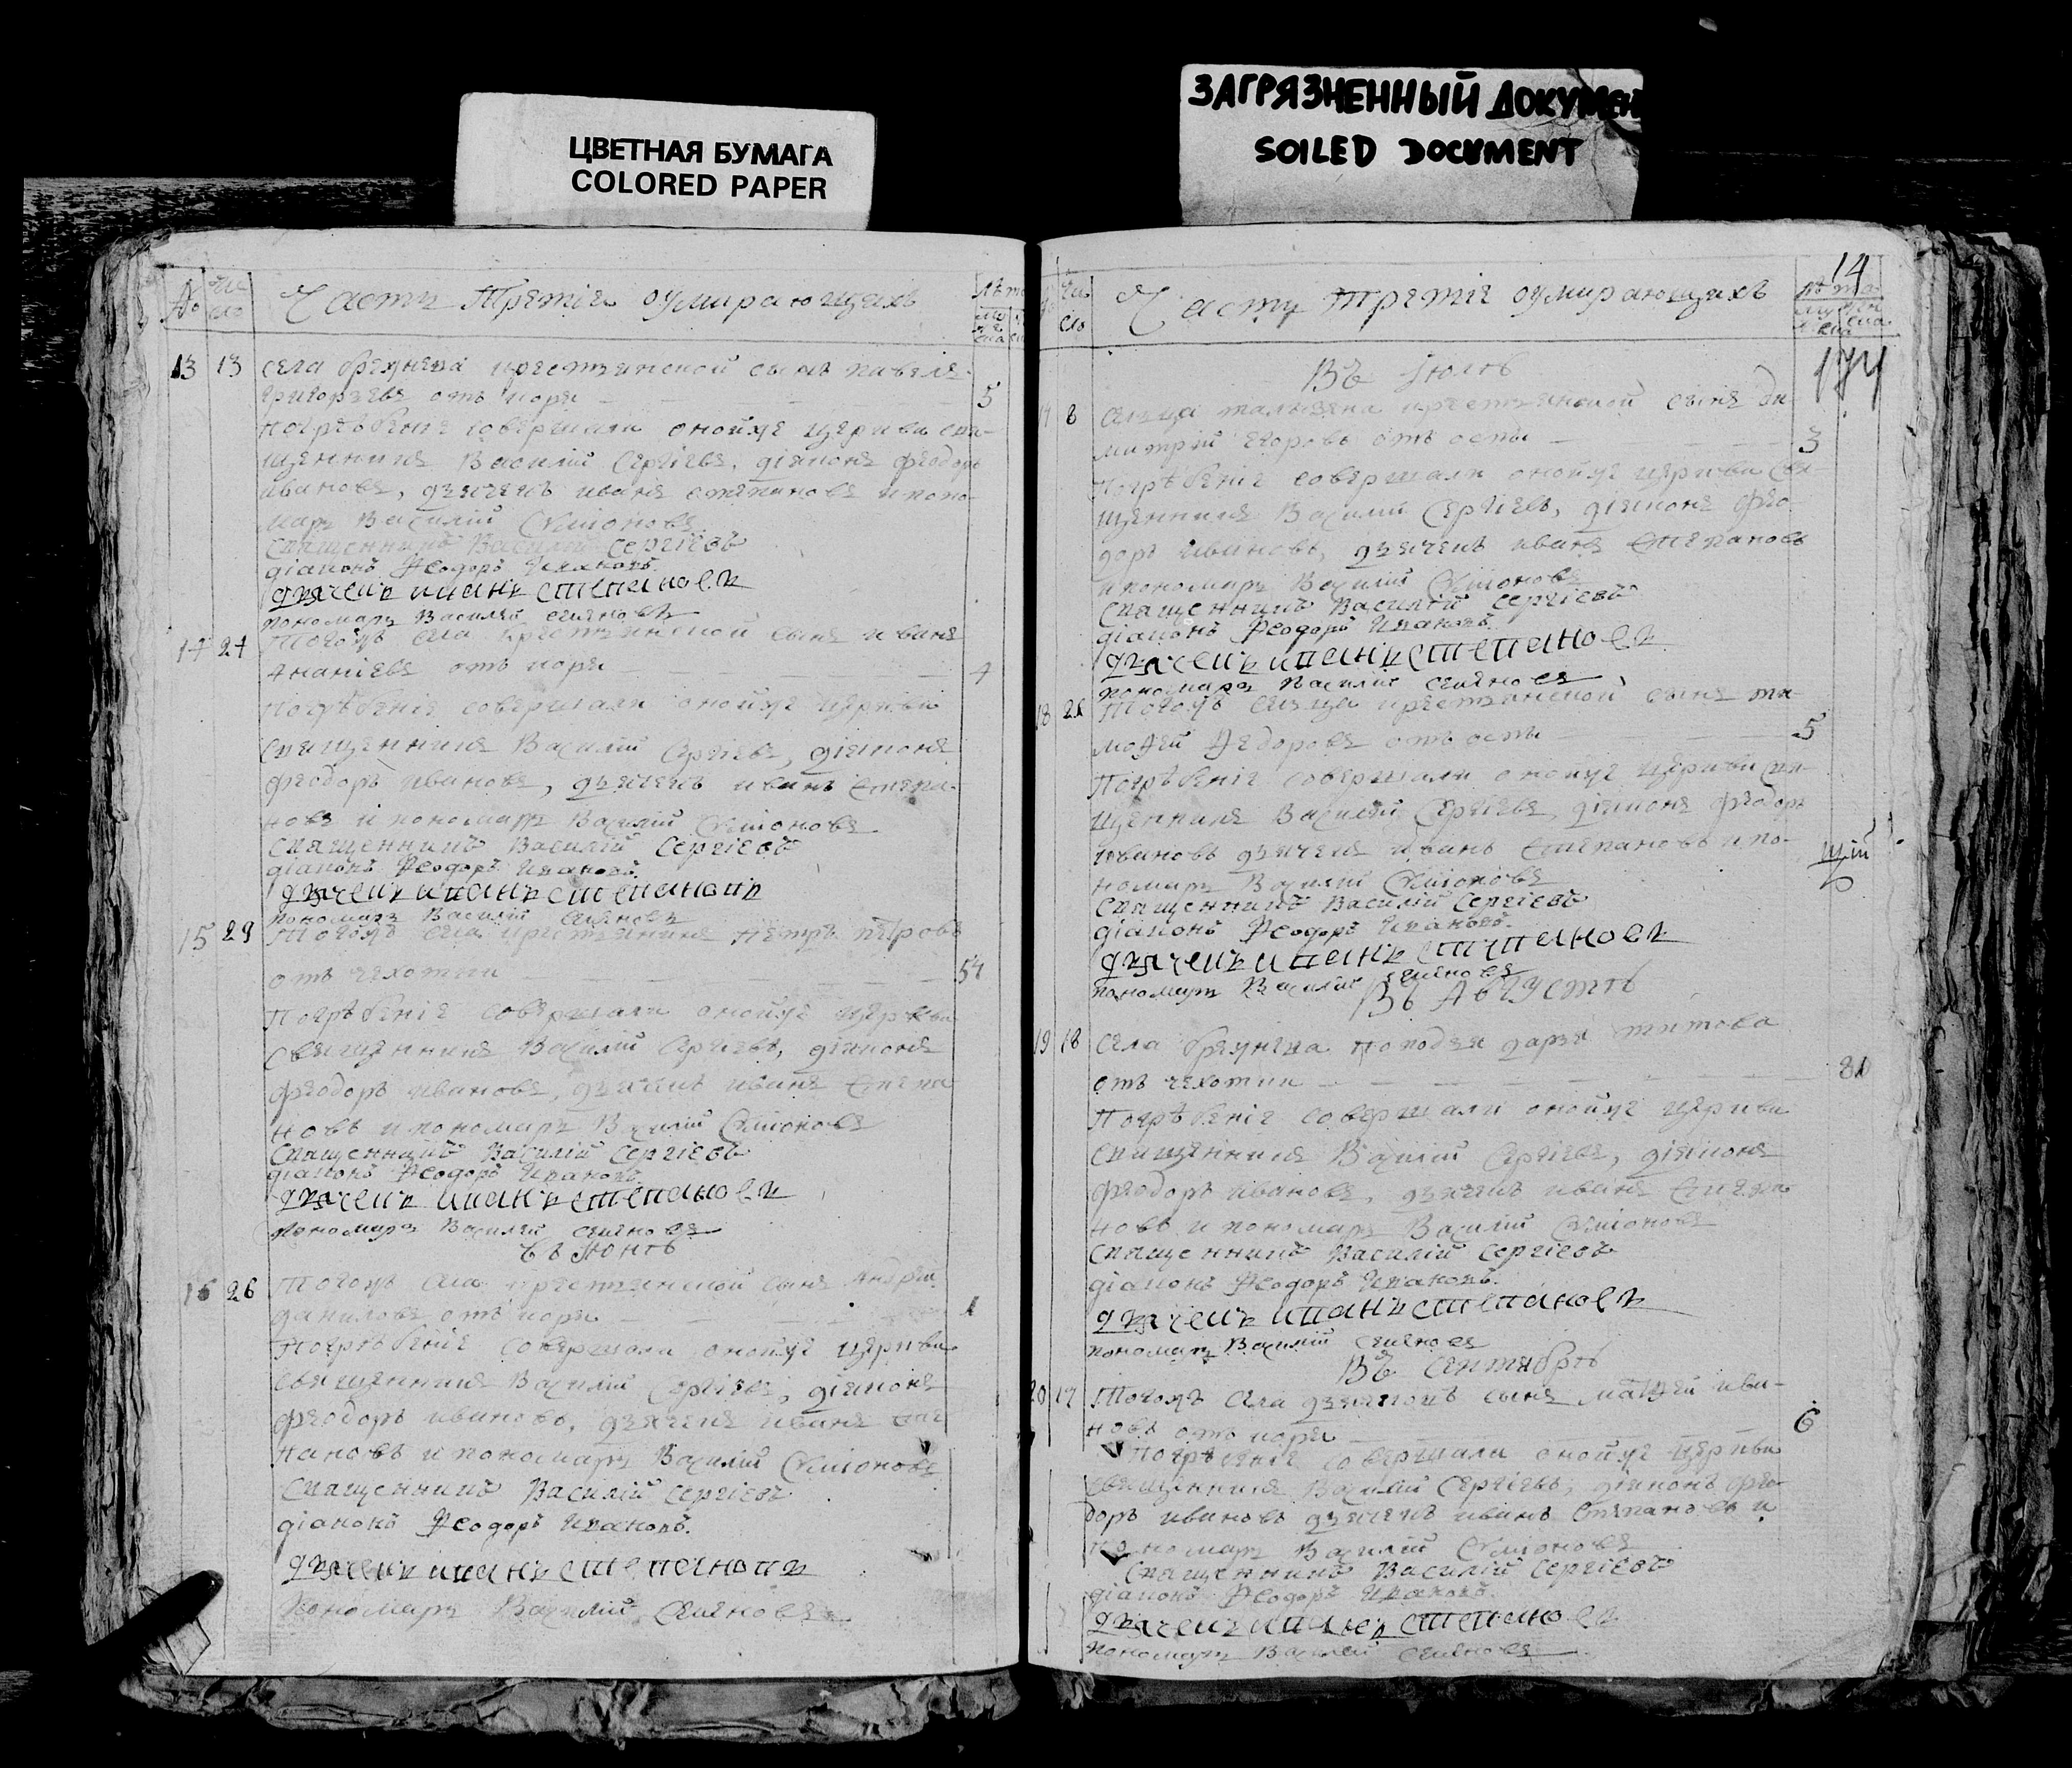 ЦВЕТНАЯ БУМАГА
COLORED PAPER
ЗАГРЯЗНЕННЫЙ ДОКУМЕН
SOILED DOCUMENT
14
№ Чи сло Часть Третія оумирающихъ Лѣта
13 13 села крестьянской сынъ павелъ
григорьевъ отъ кори 5
погребеніе совершали онойже церкви свя-
щенникъ Василій Сергіевъ, діаконъ феодоръ
ивановъ, дьячекъ иванъ степановъ и поно-
марь Василій Симіоновъ
Священникъ Василій Сергіевъ
діаконъ Ѳеодоръ Ивановъ.
дьячекъ иванъ степановъ
пономарь Василей семионовъ
14 24 Тогожъ села крестьянской сынъ иванъ
Ананіевъ отъ кори 4
Погребеніе совершали онойже церкви
Священникъ Василій Сергіевъ, діаконъ
феодоръ ивановъ, дьячекъ иванъ Степа-
новъ и пономарь Василій Симіоновъ
Священникъ Василій Сергіевъ
діаконъ Ѳеодоръ Ивановъ.
дьячекъ иванъ степановъ
пономарь Василій семионовъ
15 29 Тогожъ села крестьянинъ петръ петровъ
отъ чехотки 54
Погребеніе совершали онойже церкви
Священникъ Василій Сергіевъ, діаконъ
феодоръ ивановъ, дьячекъ иванъ Степа
новъ и пономарь Василій Симіоновъ
Священникъ Василій Сергіевъ
діаконъ Ѳеодоръ Ивановъ.
дьячекъ иванъ степановъ
пономарь Василей семионовъ
въ Іюнѣ
16 26 Тогожъ села крестьянской сынъ Андрей
даниловъ отъ кори 1
Погребеніе совершали онойже церкви
Священникъ Василій Сергіевъ, діаконъ
феодоръ ивановъ, дьячекъ иванъ Сте
пановъ и пономарь Василій Симіоновъ
Священникъ Василій Сергіевъ
діаконъ Ѳеодоръ Ивановъ.
дьячекъ иванъ степановъ
пономарь Василій семионовъ
Число Часть Третія оумирающихъ Лѣта
174
Въ Іюлѣ
17 8 Сельца крестьянской сынъ ди
митрій егоровъ отъ оспы 3
Погребеніе совершали онойже церкви свя-
щенникъ Василій Сергіевъ, діаконъ фео
доръ ивановъ, дьячекъ иванъ Степановъ
и пономарь Василій Симіоновъ
Священникъ Василій Сергіевъ
діаконъ Ѳеодоръ Ивановъ.
дьячекъ иванъ степановъ
пономарь Василій семионовъ
18 Тогожъ сельца крестьянской сынъ ти-
моѳей Ѳедоровъ отъ оспы 5
Погребеніе совершали онойже церкви свя-
щенникъ Василій Сергіевъ, діаконъ феодоръ
ивановъ дьячекъ иванъ Степановъ и по-
номарь Василій Симіоновъ
Священникъ Василій Сергіевъ
діаконъ Ѳеодоръ Ивановъ.
дьячекъ иванъ степановъ
пономарь Василій семионовъ
Въ Августѣ
19 18 Села попадья дарья титова
отъ чехотки
Погребеніе совершали онойже церкви
священникъ Василій Сергіевъ, діаконъ
феодоръ ивановъ, дьячекъ иванъ Степа
новъ и пономарь Василій Симіоновъ
Священникъ Василій Сергіевъ
діаконъ Ѳеодоръ Ивановъ.
дьячекъ иванъ степановъ
пономарь Василій семионовъ
Въ Сентябрѣ
20 17 Тогожъ села сынъ маѳѳей ива-
новъ отъ кори 6
Погребеніе совершали онойже церкви
священникъ Василій Сергіевъ, діаконъ фео-
доръ ивановъ дьячекъ иванъ Степановъ и
пономарь Василій Симіоновъ
Священникъ Василій Сергіевъ
діаконъ Ѳеодоръ Ивановъ.
дьячекъ иванъ степановъ
пономарь Василей семионовъ